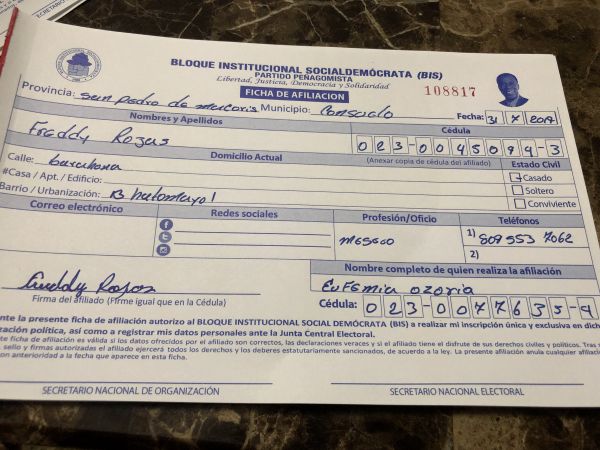 SECRETARIO
BLOQUE INSTITUCIONAL SOCIALDEMÓCRATA (BIS)
PARTIDO PEÑAGOMISTA
Libertad, Justicia, Democracia y Solidaridad
FICHA DE AFILIACION
108817
Provincia: san pedro de macoris Municipio: Consuelo Fecha: 31 7 2017
Nombres y Apellidos Cédula
Freddy Rojas 023-0045094-3
Domicilio Actual (Anexar copia de cédula del afiliado) Estado Civil
Calle: barahona Casado
#Casa / Apt. / Edificio: Soltero
Barrio / Urbanización: B hatomayol Conviviente
Correo electrónico Redes sociales Profesión/Oficio Teléfonos
1) 809 553 7062
2)
Nombre completo de quien realiza la afiliación
Freddy Rojas Eufemia ozoria
Firma del afiliado (Firme igual que en la Cédula) Cédula: 023-0077635-4
nte la presente ficha de afiliación autorizo al BLOQUE INSTITUCIONAL SOCIAL DEMÓCRATA (BIS) a realizar mi inscripción única y exclusiva en dich
zación política, así como a registrar mis datos personales ante la Junta Central Electoral.
te ficha de afiliación es válida si los datos ofrecidos por el afiliado son correctos, las declaraciones veraces y si el afiliado tiene el disfrute de sus derechos civiles y políticos. Tras
sello y firmas autorizadas el afiliado ejercerá todos los derechos y los deberes estatutariamente sancionados, de acuerdo a la ley. La presente afiliación anula cualquier afiliaci
on anterioridad a la fecha que aparece en esta ficha.
SECRETARIO NACIONAL DE ORGANIZACIÓN SECRETARIO NACIONAL ELECTORAL